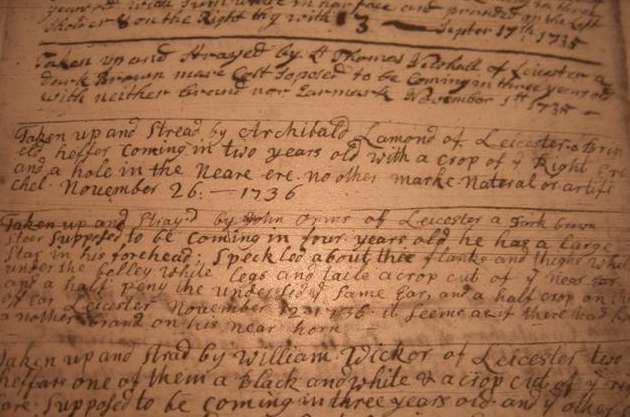 year old with some white in her face and
shoulder & on the Right thy with 13 — Septer 17th 1735
Taken up and strayed by Lt Thomas of Leicester a
Dark Brown mare Colt Soposed to be Coming in three years old
with neither brand nor Earmark November 1st 1735 —
Taken up and stread by Archibald Lamond of Leicester a Brin
eld heffer coming in two years old with a crop of ye Right Ere
and a hole in the Neare ere no other marke Nateral or artifi
chel November 26 — 1736
Taken up and Stray'd by John of Leicester a Dark brown
steer Supposed to be Coming in four years old he has a large
Star in his forehead; Speckled about thee flanks and thighs
under the belley white Legs and taile a crop cut of ye near Ear
and a half peny the underside ye Same Ear, and a half crop on the
off Ear Leicester November 12 1736 it seems as if there was
another brand on his near horn —
Taken up and Strad by William Wicker of Leicester two
heffars one of them a Black and white & a crop cut of ye
Supposed to be coming in three years old and ye other